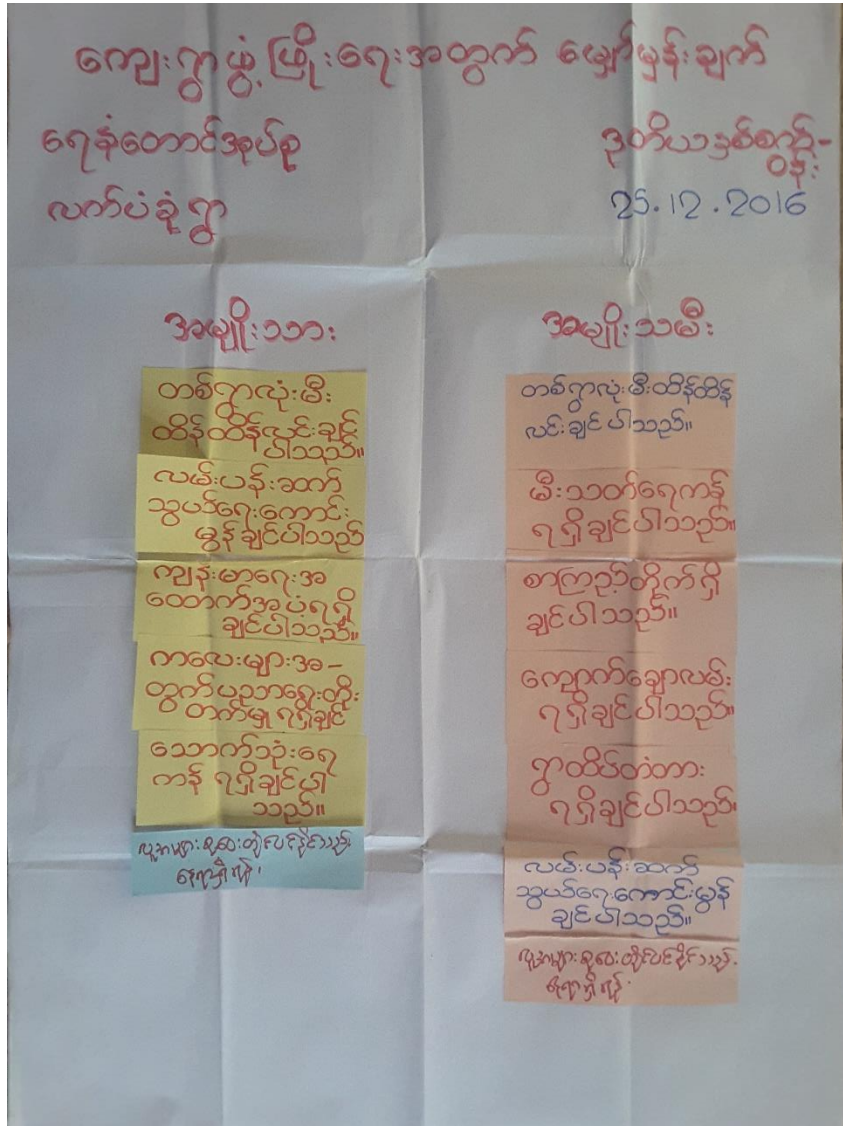 ကျေးရွာဖွံ့ဖြိုးရေးအတွက် မျှော်မှန်းချက်
ရေနံတောင်အုပ်စု
ဒုတိယနှစ်စက်ဝန်း
လက်ပံခုံရွာ
25.12.2016
အမျိုးသား
တစ်ရွာလုံးမီး
ထိန်ထိန်လင်းချင်
ပါသည်။
လမ်းပန်းဆက်
သွယ်ရေးကောင်း
မွန်ချင်ပါသည်
ကျန်းမာရေးအ
ထောက်အပံ့ရရှိ
ချင်ပါသည်။
ကလေးများအ-
တွက်ပညာရေးတိုး
တက်မှုရရှိချင်
သောက်သုံးရေ
ကန်ရရှိချင်ပါ
သည်။
လူအများစုဝေးတိုင်ပင်နိုင်သည့်
နေရာရှိရန်။
အမျိုးသမီး
တစ်ရွာလုံးမီးထိန်ထိန်
လင်းချင်ပါသည်။
မီးသတ်ရေကန်
ရရှိချင်ပါသည်။
စာကြည့်တိုက်ရှိ
ချင်ပါသည်။
ကျောက်ချောလမ်း
ရရှိချင်ပါသည်။
ရွာထိပ်တံတား
ရရှိချင်ပါသည်။
လမ်းပန်းဆက်
သွယ်ရေးကောင်းမွန်
ချင်ပါသည်။
လူအများစုဝေးတိုင်ပင်နိုင်သည့်
နေရာရှိရန်။